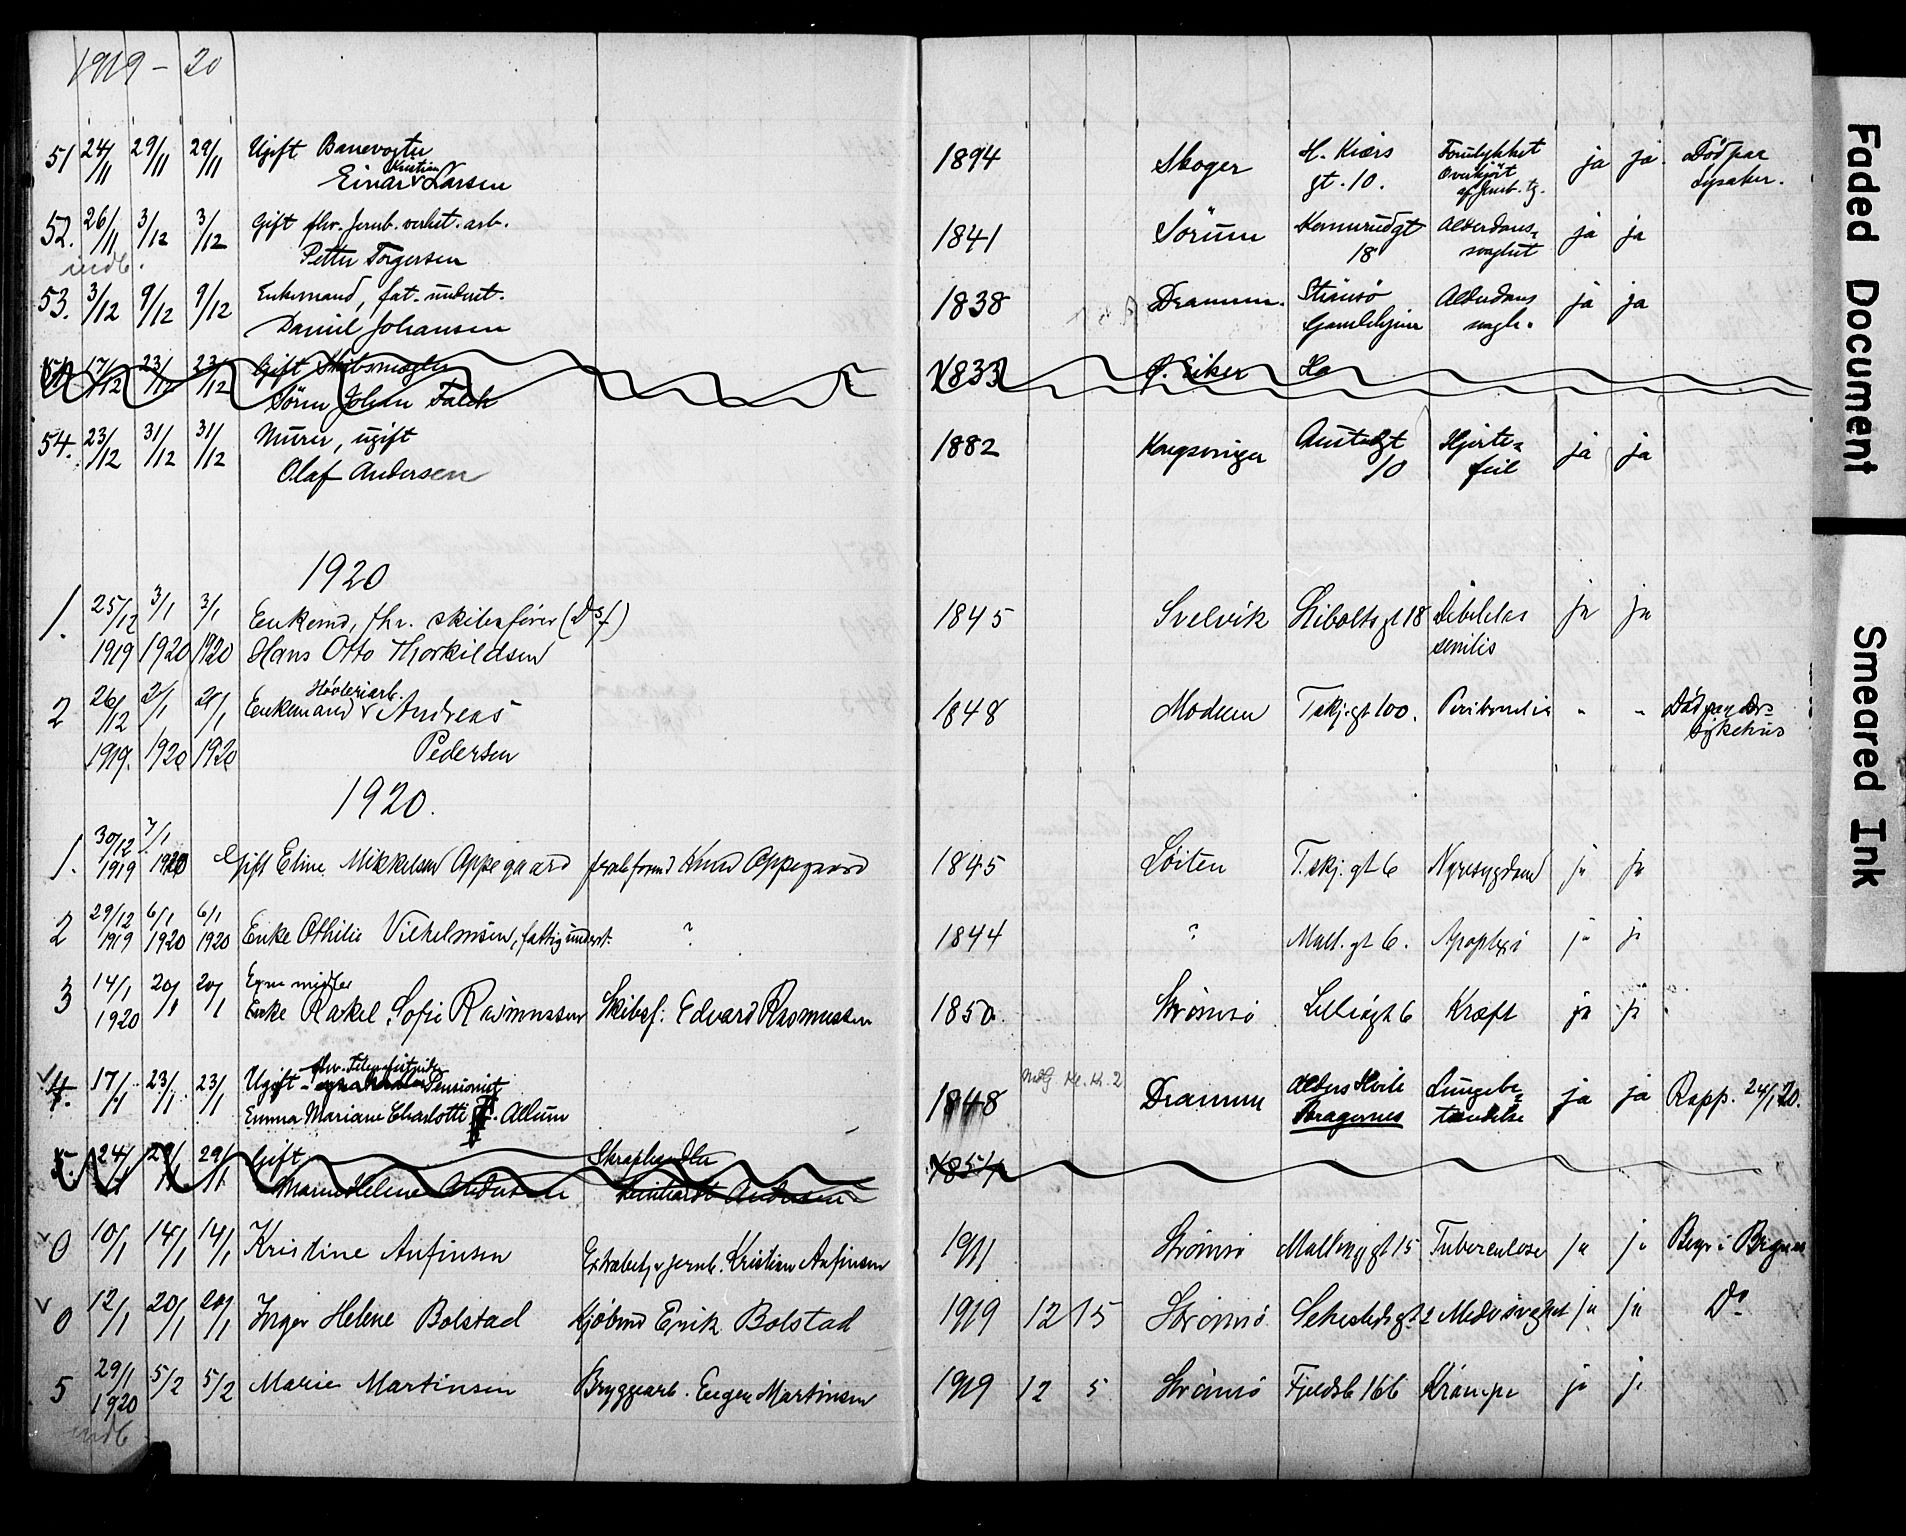 1919 - 20
51 24/11 29/11 29/11 Ugift Banevogter 1894 Skoger H. Kiærs Forulykket ja ja Död paa
Einar Kristian Larsen gt. 10. Overkjört Lysaker.
af Jernb. tg.
52. 26/11 3/12 3/12 Gift fhv. Jernb. verkst. arb. 1841 Sörum Konnerudgt Alderdoms= ja ja
indb. Petter Torgersen 18 svaghet
53. 3/12 9/12 9/12 Enkemand, fat. underst. 1838 Drammen. Strömsö Alderdoms ja ja
Daniel Johansen Gamlehjem svagh.
17/12 23/12 23/12 Gift Skibsmægler 1833 Ø. Eiker Ha
Sören Johan Falch
54. 23/12 31/12 31/12 Murer, ugift 1882 Kongsvinger gt Hjerte= ja ja
Olaf Andersen 10 feil
1920
1. 25/12 3/1 3/1 Enkemd, fhr. skibsfører (Dsf) 1845 Svelvik gt 18 Debilitas ja ja
1919 1920 1920 Hans Otto Thorkildsen senilis
2 26/12 2/1 2/1 Enkemand Høvleriarb. Andreas 1848 Modum T skj. gt 100. " " Död paa Dr=
1919. 1920 1920 Pedersen sykehus
1920.
1. 30/12 7/1 Gift Eline Mikkelsen Oppegaard Knud Oppegaard 1845 Løiten T. skj. gt 6 Nyresygdom ja ja
1919 1920
2 29/12 6/1 6/1 Enke Othilie Vilhelmsen, fattigunderst. ? 1844 ? Mall. gt 6. Apoplexi ja ja
1919 1920 1920
3 14/1 20/1 20/1 Egne midler
1920 Enke Rakel Sofie Rasmussen Skibsf: Edvard Rasmussen 1850 Strömsö gt 6 Kræft ja ja
4. 17/1 23/1 23/1 Ugift fhv. Pensionist 1848 Drammen Alders Hvile Lungebe= ja ja Rapp. 24/1 20.
Emma Mariane Charlotte Allum Bragernes tændelse
5. 24/1 29/1 29/1 Gift Skraphandler 1854
Marie Helene Andersen Reinhardt Andersen
0 10/1 14/1 14/1 Kristine Anfinsen Kristian Anfinsen 1911 Strömsö gt 15 Tuberculose ja ja Begr i
0 12/1 20/1 20/1 Inger Helene Bolstad Kjöbmd Erik Bolstad 1919 12 15 Strömsö ja ja Do
5 29/1 5/2 5/2 Marie Martinsen Bryggearb. Eugen Martinsen 1919 12 5 Strömsö Fjeldsb 166 Krampe ja ja
1920
indb
Faded Document
Smeared Ink